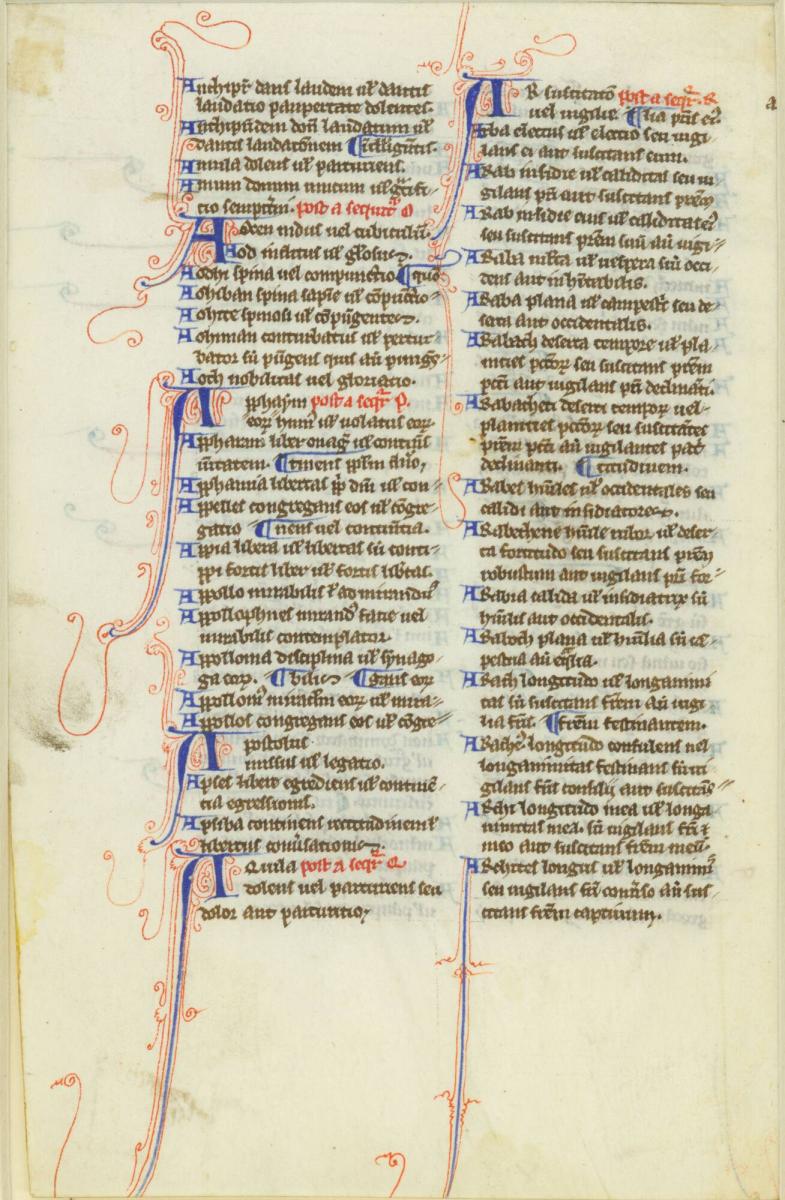 Anthipr dans laudem ul dantis
laudatio paupertate dolentes.
Anthipridem doni laudatum ul
dantis laudationem ¶ intelligentis.
Amula dolens ul parturiens.
Amum donum unicum ul
tio sempitni. post a sequitr O
Aoden nidus vel cubiculum.
Aod inclitus ul gliosus.
Aothi spina vel compunctio ¶ quo
Aohiban spina sapie ul cōpuctio
Aohite spinosi ul cōpugentes.
Aohiman conturbatus ul pertur
bator sū pūgens quis aū
Aoth nobilitas uel gloriatio.
Apphaym post a seqr P.
eorum ul uolatus eorum
Apphaim liber ul continens
unitatem. ¶ tinens
Apphania libertas ul con
Appelles congregans eos ul cōgre
gatio ¶ nens uel continentia.
Appia libera ul libertas sū conti
Appi fortis liber ul fortis libtas.
Appollo mirabilis ad mirandū
Appollophnes mirands facie vel
mirabilis contemplator.
Appollonia disciplina ul synago
ga eorum. ¶ bilis ¶ gans eos
Appolloni miraclm eorum ul mira
Appollos congregans eos ul cōgre
Apostolus
missus ul legatio.
Apses liber egrediens ul continē
tia egressionis.
Apsiba continens rectitudinem ul
libertus conuersationis.
Aquila post a seqr Q
dolens vel parturiens seu
dolor aut parturitio
a
AR suscitatō post a seqr. R
uel uigilie. ¶ lia
Arba electus ul electio seu uigi
lans ei aut suscitans eum.
Arab insidie ul caliditas seu ui
gilans prī aut suscitans prēm
Arab insidie eius ul caliditates
seu suscitans prēm suū aū uigi
Araba ul uespera siū occi
dens aut inhitabilis.
Araba plana ul campest seu de
serta aut occidentalis.
Arabach deserta tempore ul pla
nities pctorum seu suscitans prēm
pcti aut uigilans pti declinati.
Arabacheti deserti temporum uel
planities pctorum seu suscitātes
prēm pcti aū uigilantes pat
declinanti. ¶ titudinem.
Arabes huiles ul occidentales seu
calidi aut insidiatores.
Arabethene huile robor ul deser
ta fortitudo seu suscitans prēm
robustum aut uigilans pri for
Arabia calida ul insidiatrix sū
huilis aut occidentalis.
Araboth plana ul huilia sū ca
pestria aū
Arach longitudo ul longanimi
tas sū suscitans frēm aū uigi
lia fris. ¶ frēm festinantem.
Arache longitudo consulens uel
longanimitas festinans sū ui
gilans fris consilii aut suscitans
Arachi longitudo mea ul longa
nimitas mea. sū uigilans frī
meo aut suscitans frēm meū.
Arechites longus ul longanimis
seu uigilans fri conuerso aū sus
citans frēm captiuum.